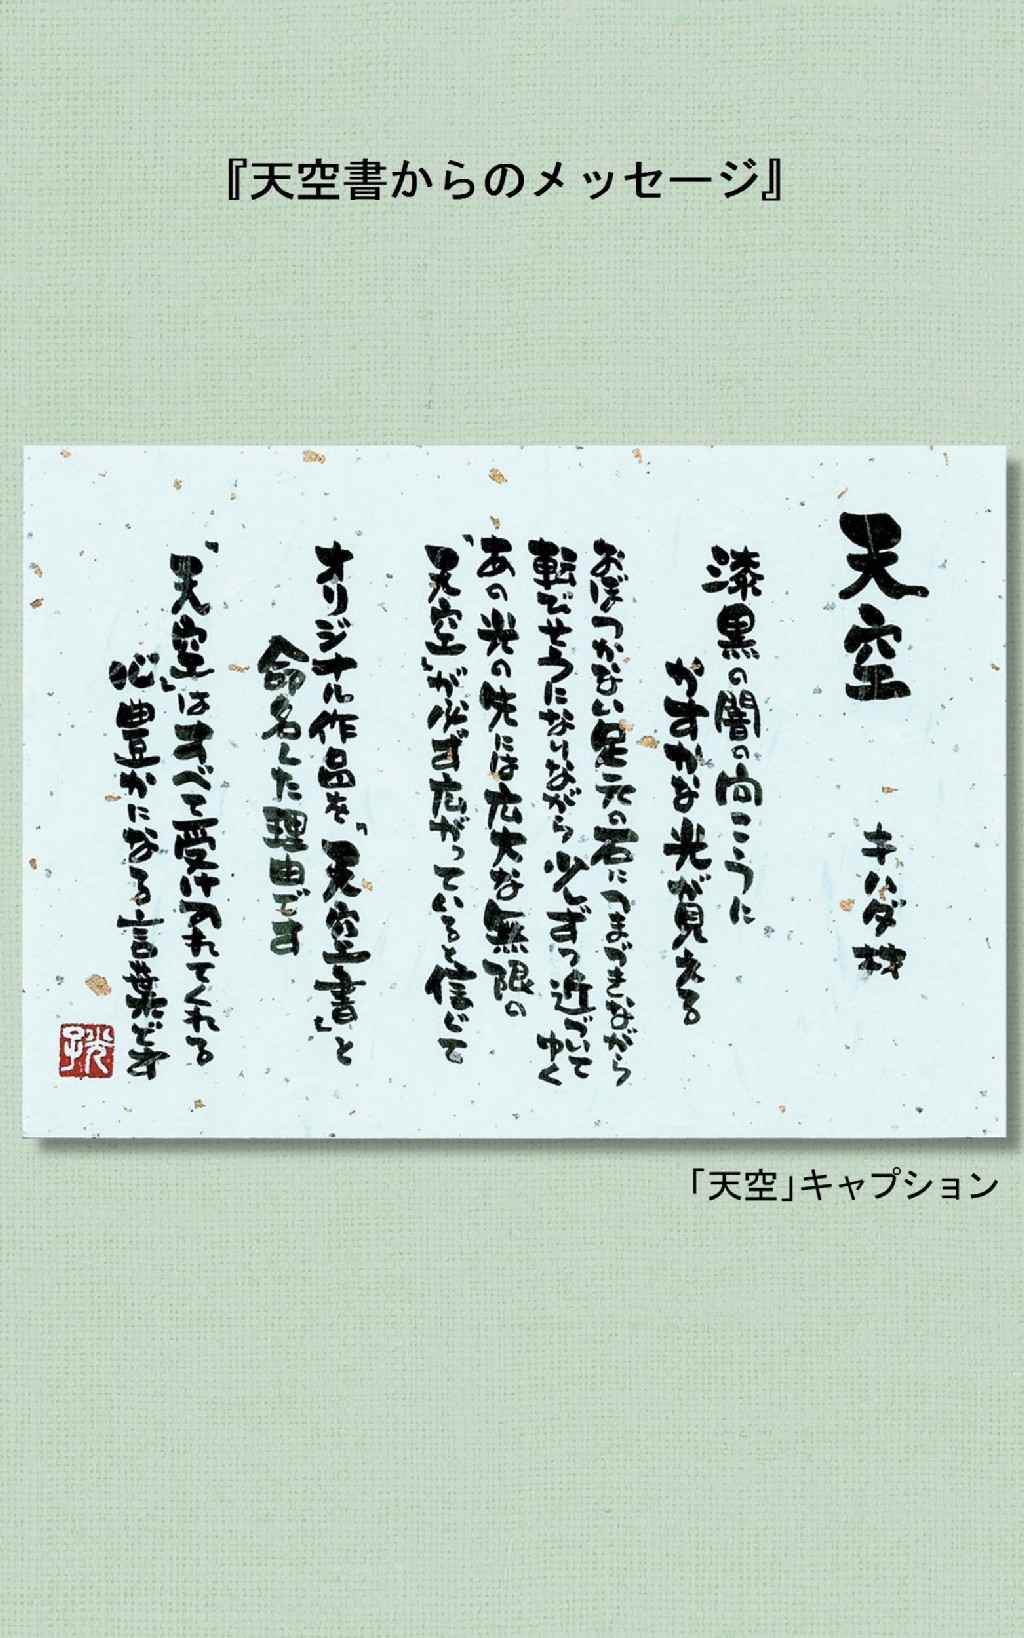 『天空書からのメッセージ』
天空
キハダ材
漆黒の闇の向こうに
かすかな光が見える
おぼつかない足元の石につまづきながら
転びそうになりながら少しずつ近づいてゆく
あの光の先には広大な無限の
「天空」が必ず広がっていると信じて
オリジナル作品を「天空書」と
命名した理由です
「天空」はすべて受け入れてくれる
心豊かになる言葉です
「天空」キャプション